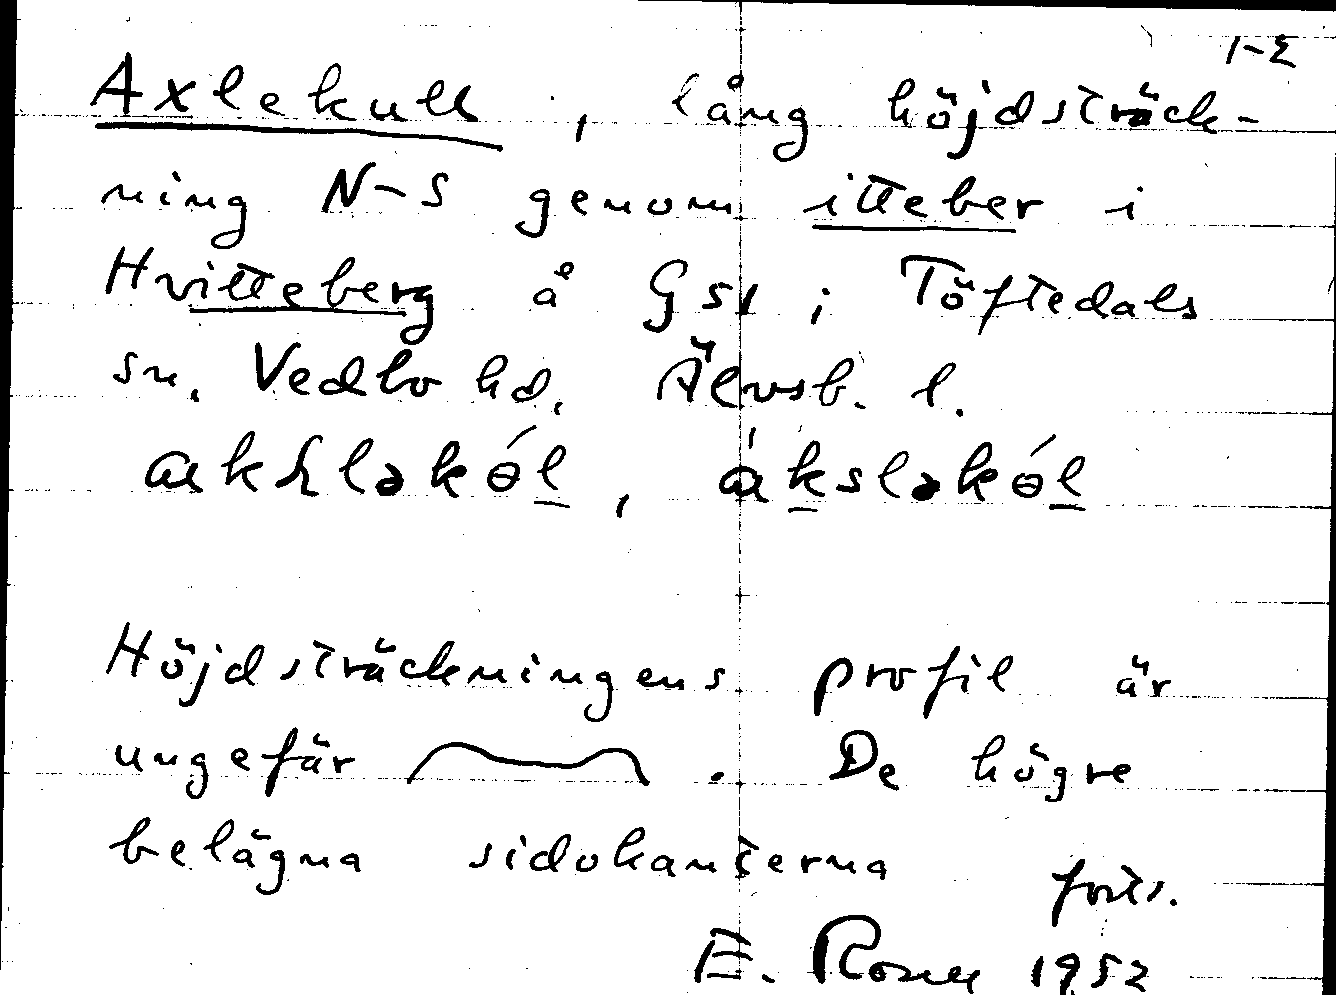 1-2
Axlekull, lång höjdsträck-
ning N-S genom itteber i
Hvitteberg å Gsk i Töftedals
sn. Vedbo hd. Älvsb. l.
Höjdsträckningens profil är
ungefär . De högre
belägna sidokanterna
forts.
E. Rosell 1952